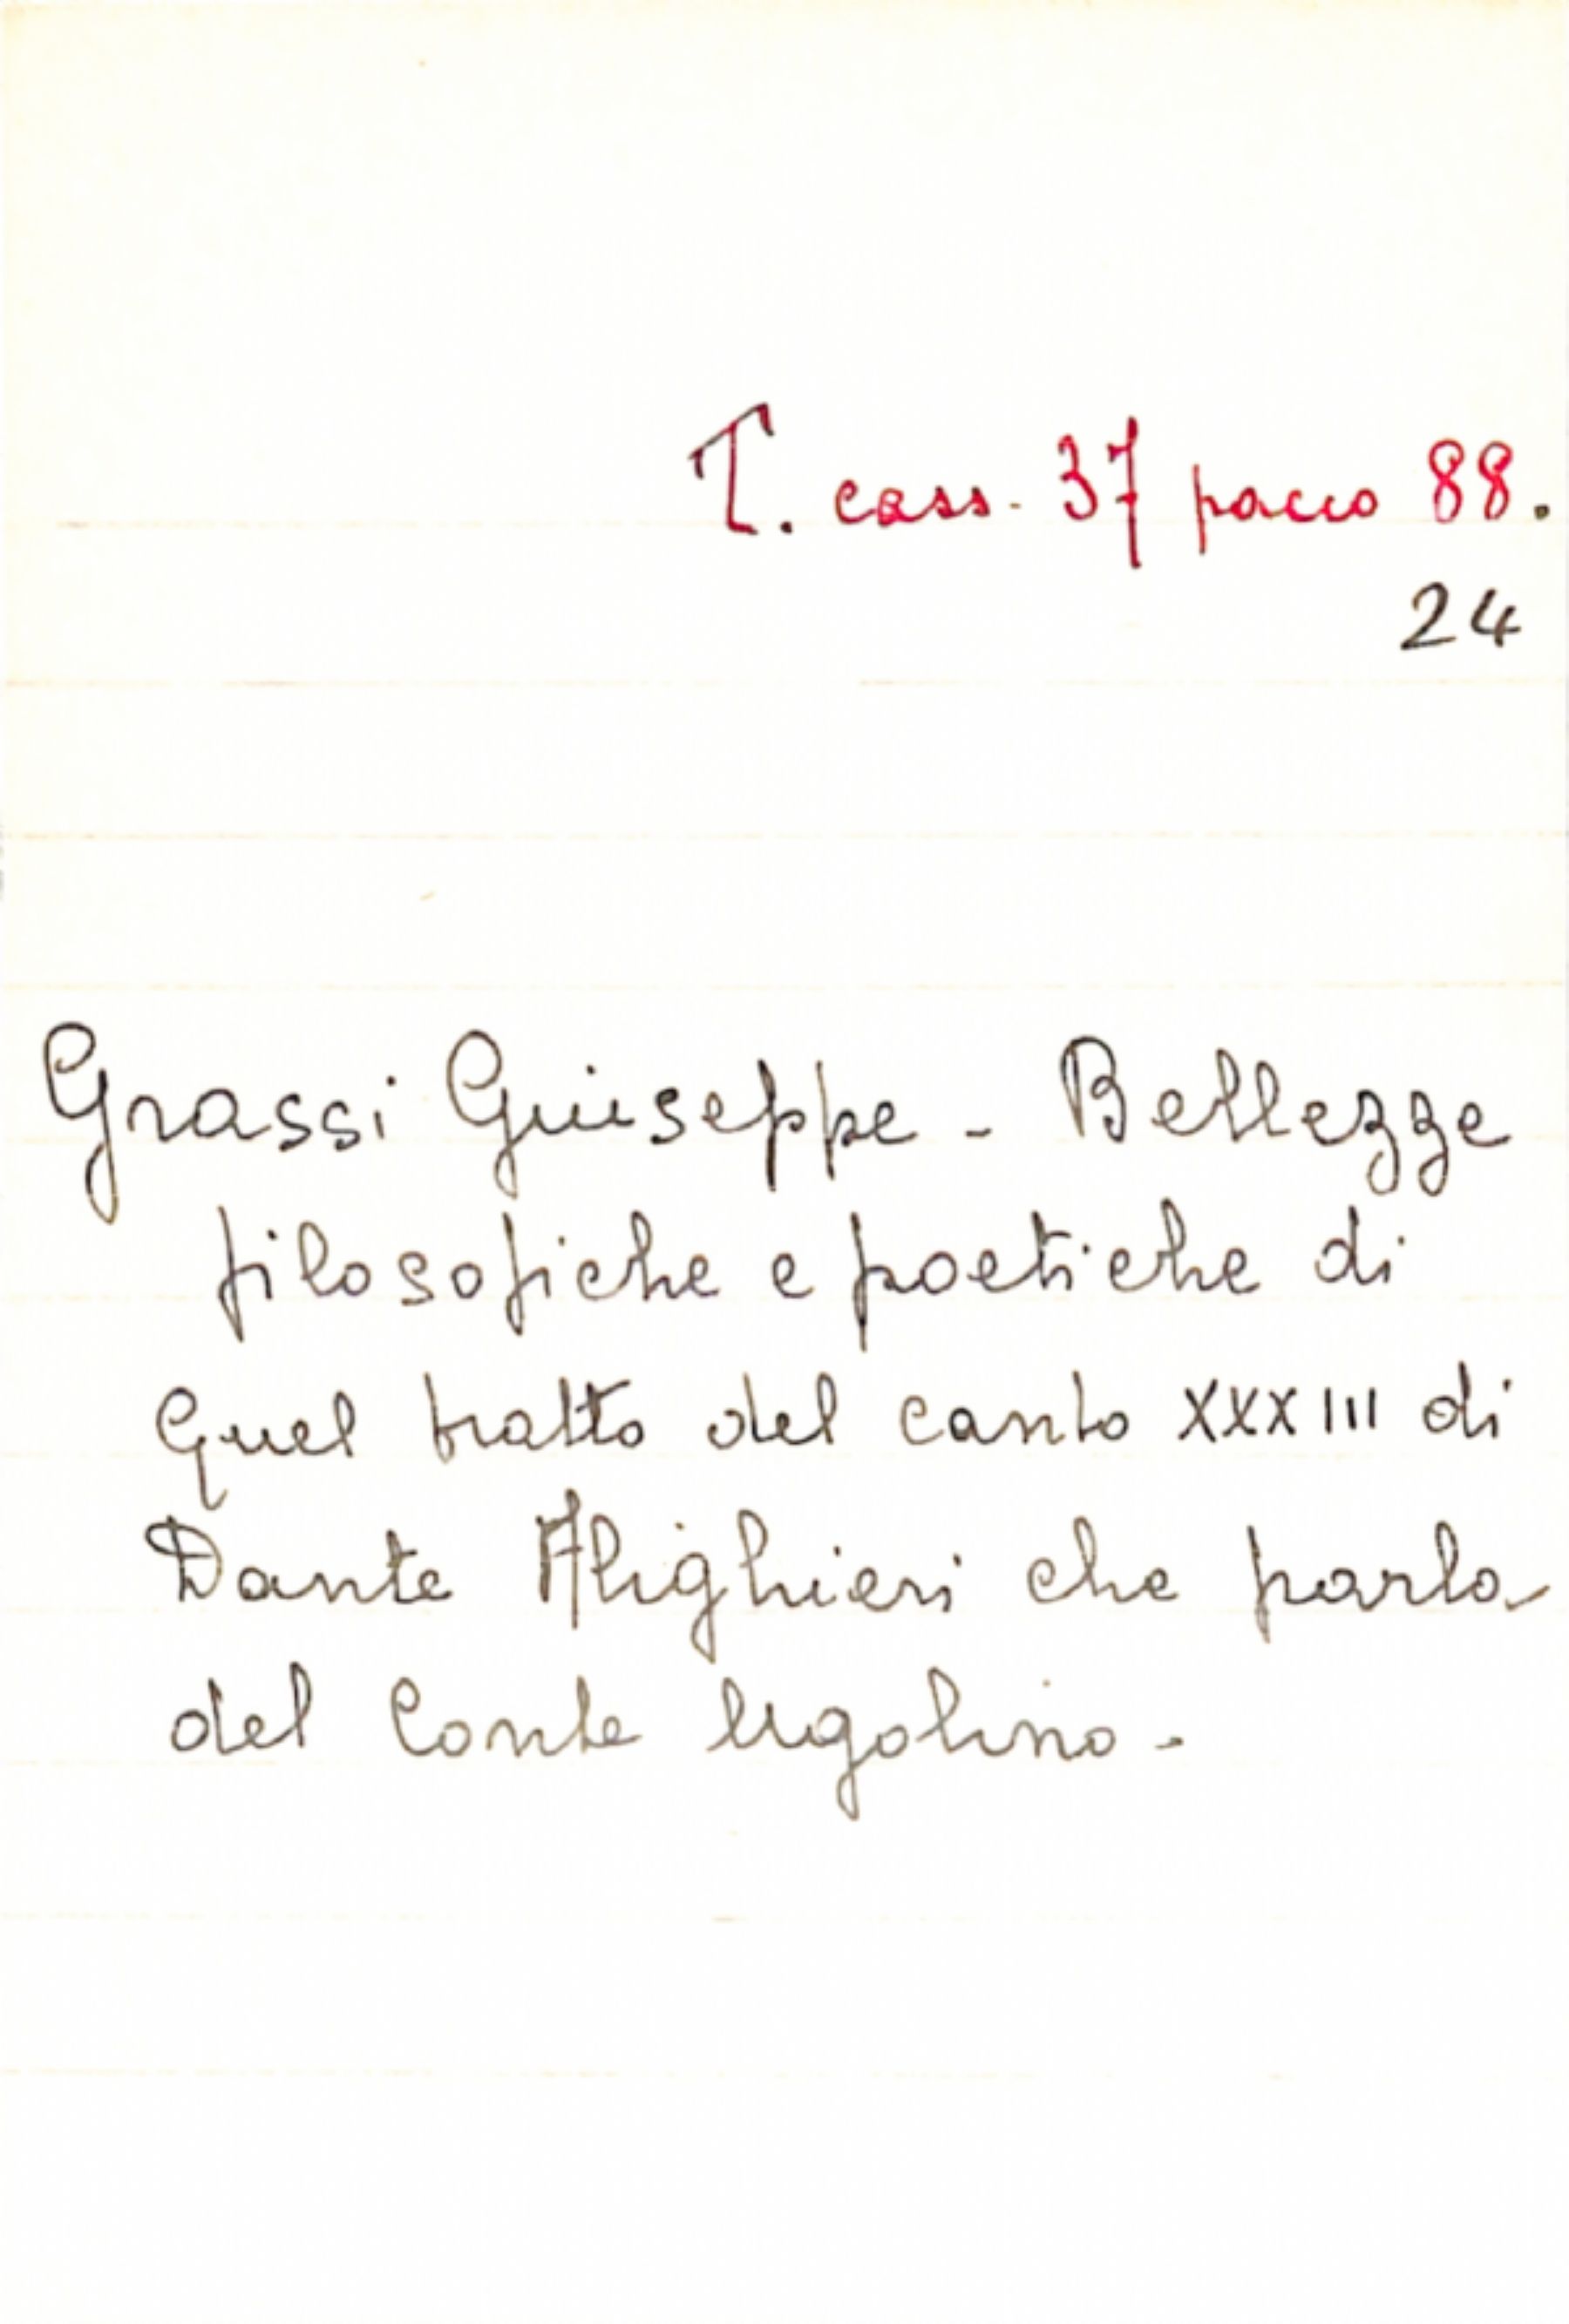 T. cass. 37 pacco 88.
24
Grassi Giuseppe - Bellezze
filosofiche e poetiche di
quel tratto del canto XXXIII di
Dante Alighieri che parla
del Conte Ugolino -